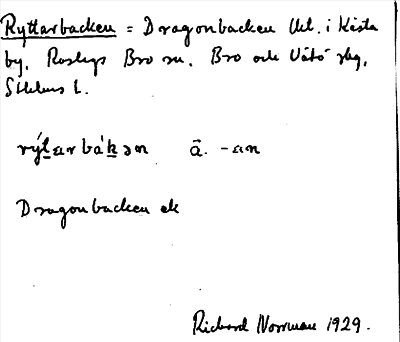 Ryttarbacken = Dragonbacken Utl. i Kista
by, Roslags Bro sn. Bro och Vätö skg,
Sthlms l.
rýt̲arbà'k̲ən ā̈. -an
Dragonbacken ek
Richard Norrman 1929.